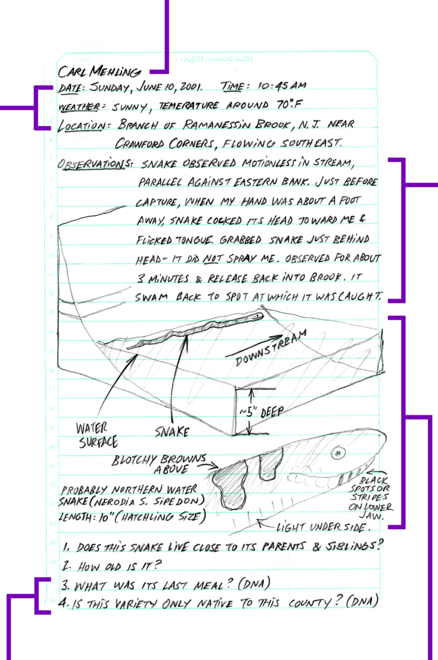 CARL MEHLING
DATE: SUNDAY, JUNE 10, 2001. TIME: 10:45 AM
WEATHER: SUNNY, TEMERATURE AROUND 70°F
LOCATION: BRANCH OF RAMANESSIN BROOK, N.J. NEAR
CRAWFORD CORNERS, FLOWING SOUTHEAST.
OBSERVATIONS: SNAKE OBSERVED MOTIONLESS IN STREAM,
PARALLEL AGAINST EASTERN BANK. JUST BEFORE
CAPTURE, WHEN MY HAND WAS ABOUT A FOOT
AWAY, SNAKE COCKED ITS HEAD TOWARD ME &
FLICKED TONGUE. GRABBED SNAKE JUST BEHIND
HEAD - IT DID NOT SPRAY ME. OBSERVED FOR ABOUT
3 MINUTES & RELEASE BACK INTO BROOK. IT
SWAM BACK TO SPOT AT WHICH IT WAS CAUGHT.
DOWNSTREAM
~5" DEEP
WATER
SURFACE
SNAKE
BLOTCHY BROWNS
ABOVE
BLACK
SPOTS OR
STRIPES
ON LOWER
JAW.
PROBABLY NORTHERN WATER
SNAKE (NERODIA S. SIPEDON)
LENGTH: 10" (HATCHLING SIZE)
LIGHT UNDERSIDE.
1. DOES THIS SNAKE LIVE CLOSE TO ITS PARENTS & SIBLINGS?
2. HOW OLD IS IT?
3. WHAT WAS ITS LAST MEAL? (DNA)
4. IS THIS VARIETY ONLY NATIVE TO THIS COUNTY? (DNA)